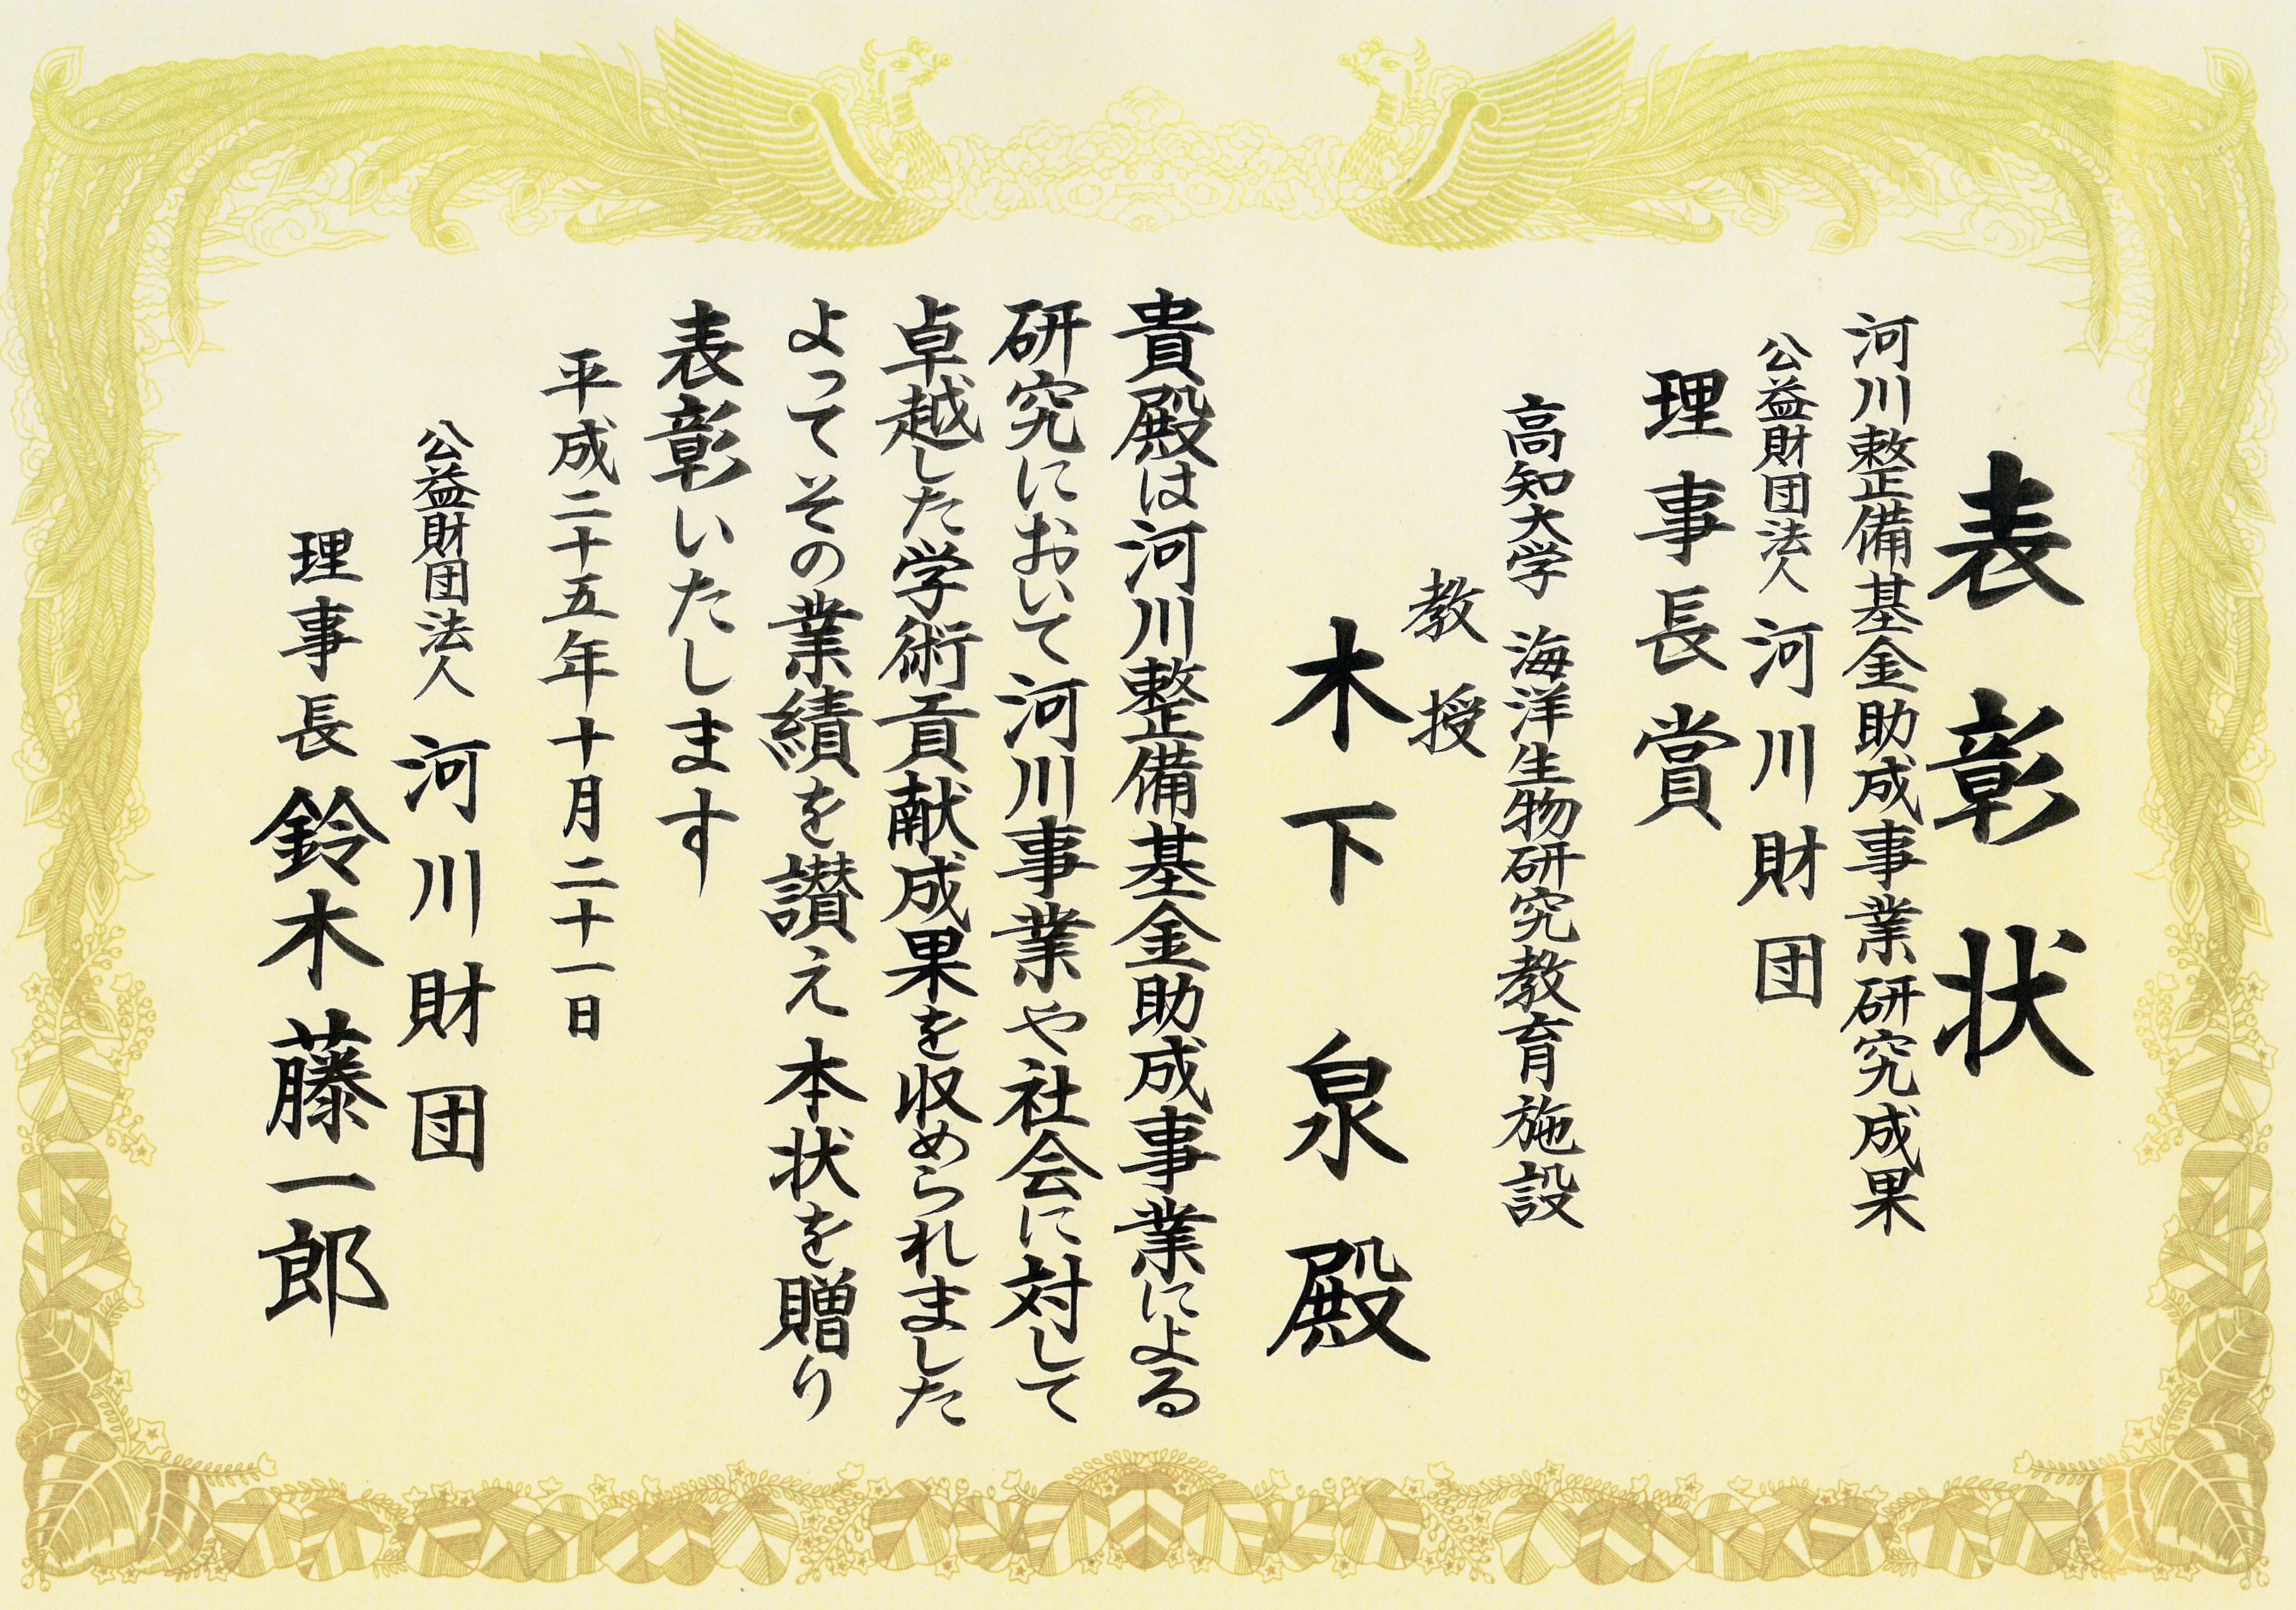 表彰状
河川整備基金助成事業研究成果
公益財団法人 河川財団
理事長賞
高知大学 海洋生物研究教育施設
教授
木下 泉 殿
貴殿は河川整備基金助成事業による
研究において河川事業や社会に対して
卓越した学術貢献成果を収められました
よってその業績を讃え本状を贈り
表彰いたします
平成二十五年十月二十一日
公益財団法人 河川財団
理事長 鈴木藤一郎